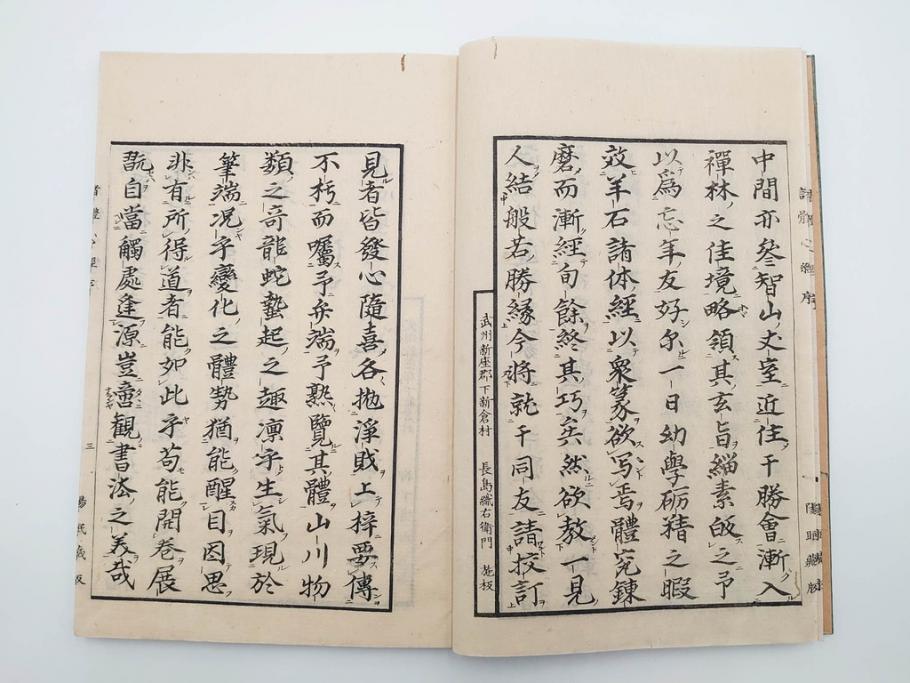 中間亦參智山丈室近住千勝會漸入
禪林之佳境略領其玄旨緇素皈之予
以爲忘年友好尓一日幼學砺精之暇
效羊石諸体經以衆篆欲写焉體完鍊
磨而漸經旬餘終其巧矣然欲教一見
人結般若勝縁今將就千同友請挍訂
武州新座郡下新倉村 長島織右衛門 施板
見者皆發心隨喜各抛淨賊上梓要傳
不朽而囑予弁端予熟覽其體山川物
類之奇龍蛇蟄起之趣凛乎生氣現於
筆端况乎變化之體勢猶能醒目因思
非有所得道者能如此乎苟能開卷展
翫自當觸處逢源豈啻観書法之美哉
三